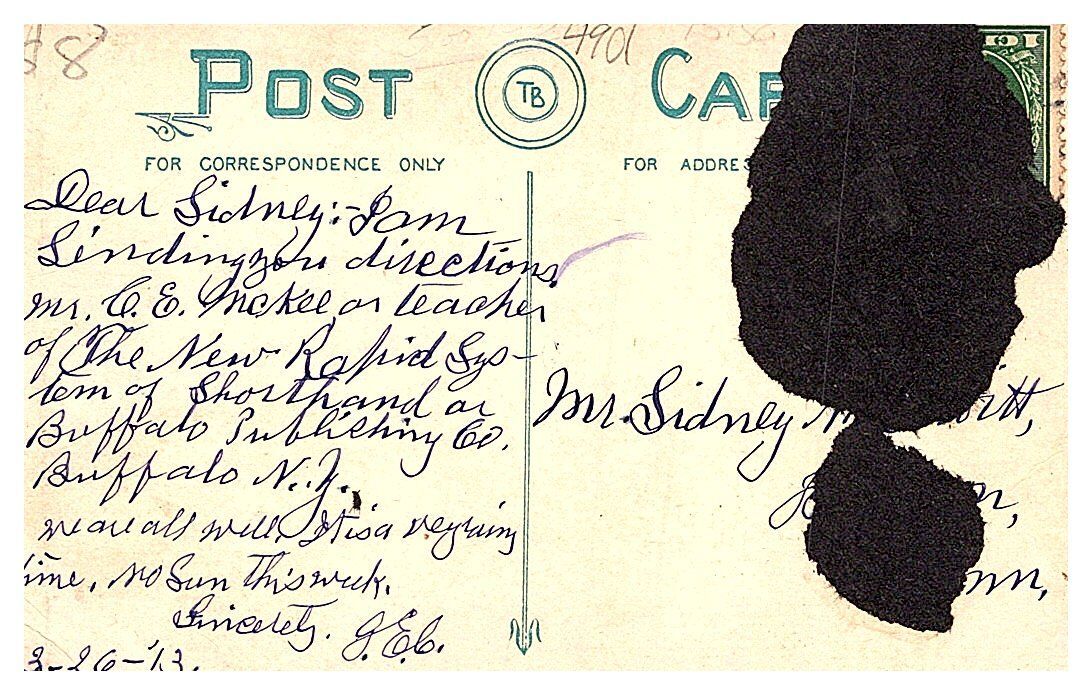 48
490
POST CAR
TB
FOR CORRESPONDENCE ONLY
FOR ADDRES
Dear Sidney:- I am
Sending you directions.
Mr. C. E. McKee or teacher
of The New Rapid Sys-
tem of Shorthand or
Buffalo Publishing Co.
Buffalo N.Y.
we are all well. It is a very rainy
time, no Sun this week.
Sincerely. J.E.C.
3-26-'13.
Mr. Sidney itt,
nn,